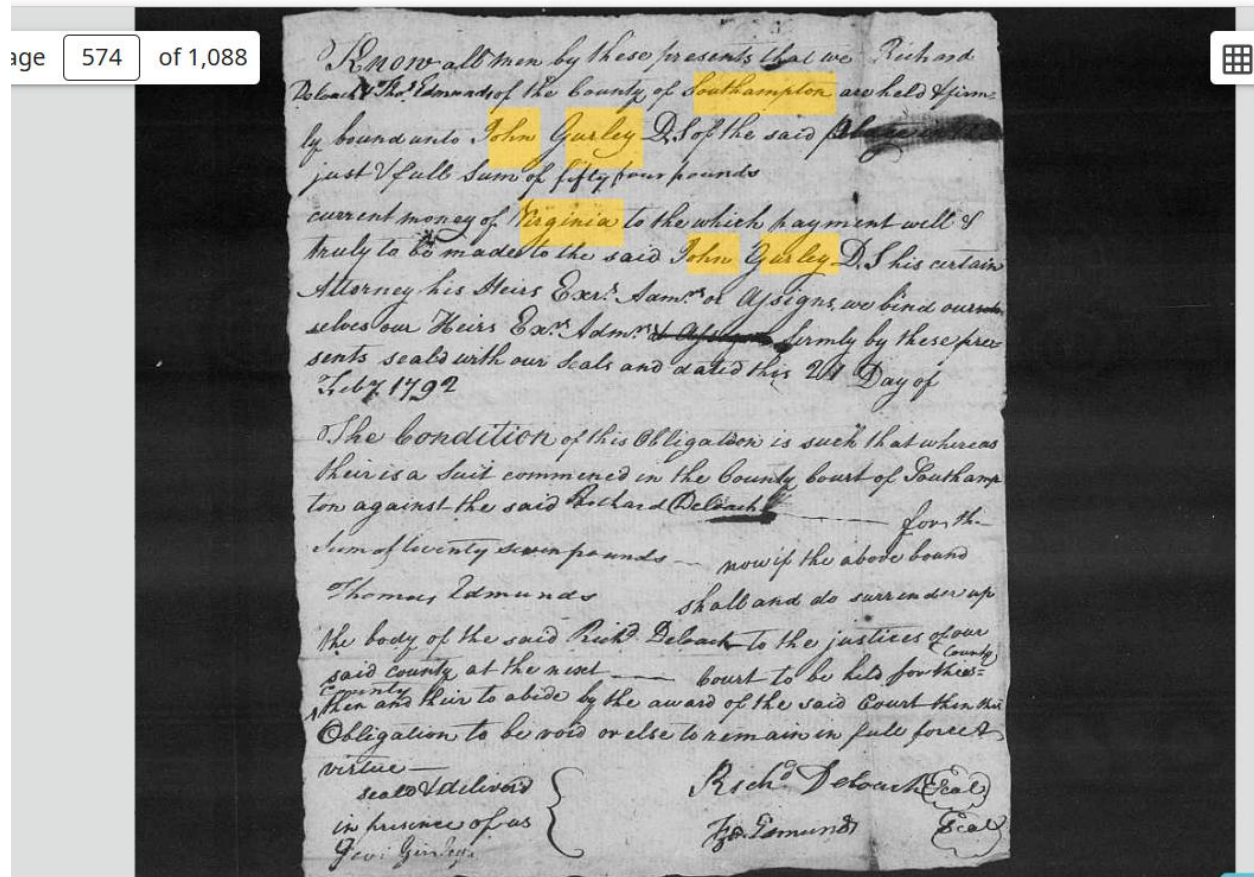 age 574 of 1,088
Know all men by these presents that we Richard
Deloach & Tho.s Edmunds of the County of Southampton are held & firm=
ly bound unto John Gurley D.S of the said
just & full Sum of fifty four pounds
current money of Virginia to the which payment well &
truly to be made to the said John Gurley D.S his certain
Attorney his Heirs Exrs. Admrs or Assigns, we bind our
selves our Heirs Exrs Admrs firmly by these pre
sents seald with our Seals and dated this Day of
Feby. 1792
The Condition of this Obligation is such that whereas
their is a Suit commenced in the County Court of Southamp
ton against the said Richard Deloach for th
Sum of twenty seven pounds now if the above bound
Thomas Edmunds shall and do surrender up
the body of the said Richd Deloach to the justices of our
said county at the next Court to be held for this= County
County
then and their to abide by the award of the said Court then this
Obligation to be void or else to remain in full force &
virtue
seald & deliverd
in presence of us
Richd Deloach Seal
Edmunds Seal